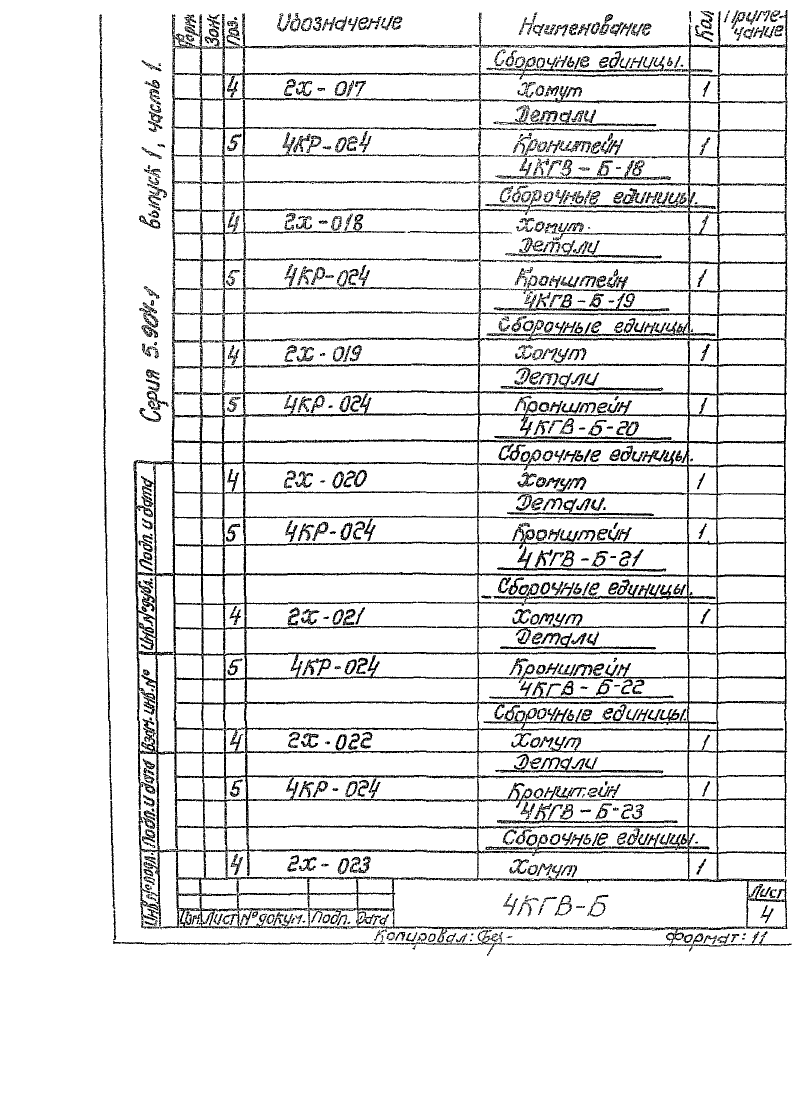 Форм Зона Поз. Обозначение Наименование Кол Приме-
чание
Сборочные единицы.
4 2Х-017 Хомут 1
Детали
5 4КР-024 Кронштейн 1
4КГВ-Б-18
Сборочные единицы.
4 2Х-018 Хомут. 1
Детали
5 4КР-024 Кронштейн 1
4КГВ-Б-19
Сборочные единицы.
4 2Х-019 Хомут 1
Детали
5 4КР-024 Кронштейн 1
4КГВ-Б-20
Сборочные единицы.
4 2Х-020 Хомут 1
Детали.
5 4КР-024 Кронштейн 1
4КГВ-Б-21
Сборочные единицы.
4 2Х-021 Хомут 1
Детали
5 4КР-024 Кронштейн
4КГВ-Б-22
Сборочные единицы.
4 2Х-022 Хомут 1
Детали
5 4КР-024 Кронштейн 1
4КГВ-Б-23
Сборочные единицы.
4 2Х-023 Хомут 1
Изм. Лист № докум. Подп. Дата
4КГВ-Б
Лист
4
Копировал:
Формат: 11
Серия 5.904-1 выпуск 1, часть 1.
Инв. № подл. Подп. и дата Взам. инв. № Инв. № дубл. Подп. и дата